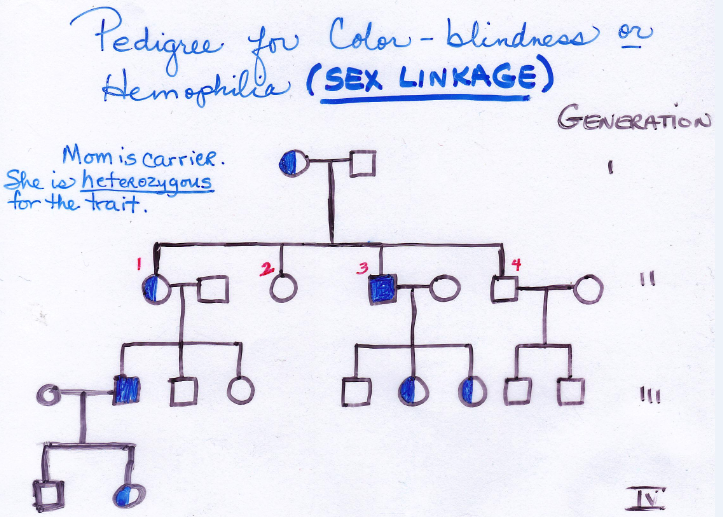 Pedigree for Color-blindness or
Hemophilia (SEX LINKAGE)
GENERATION
Mom is carrier.
She is heterozygous
for the trait.
I
1
2
3
4
II
III
IV